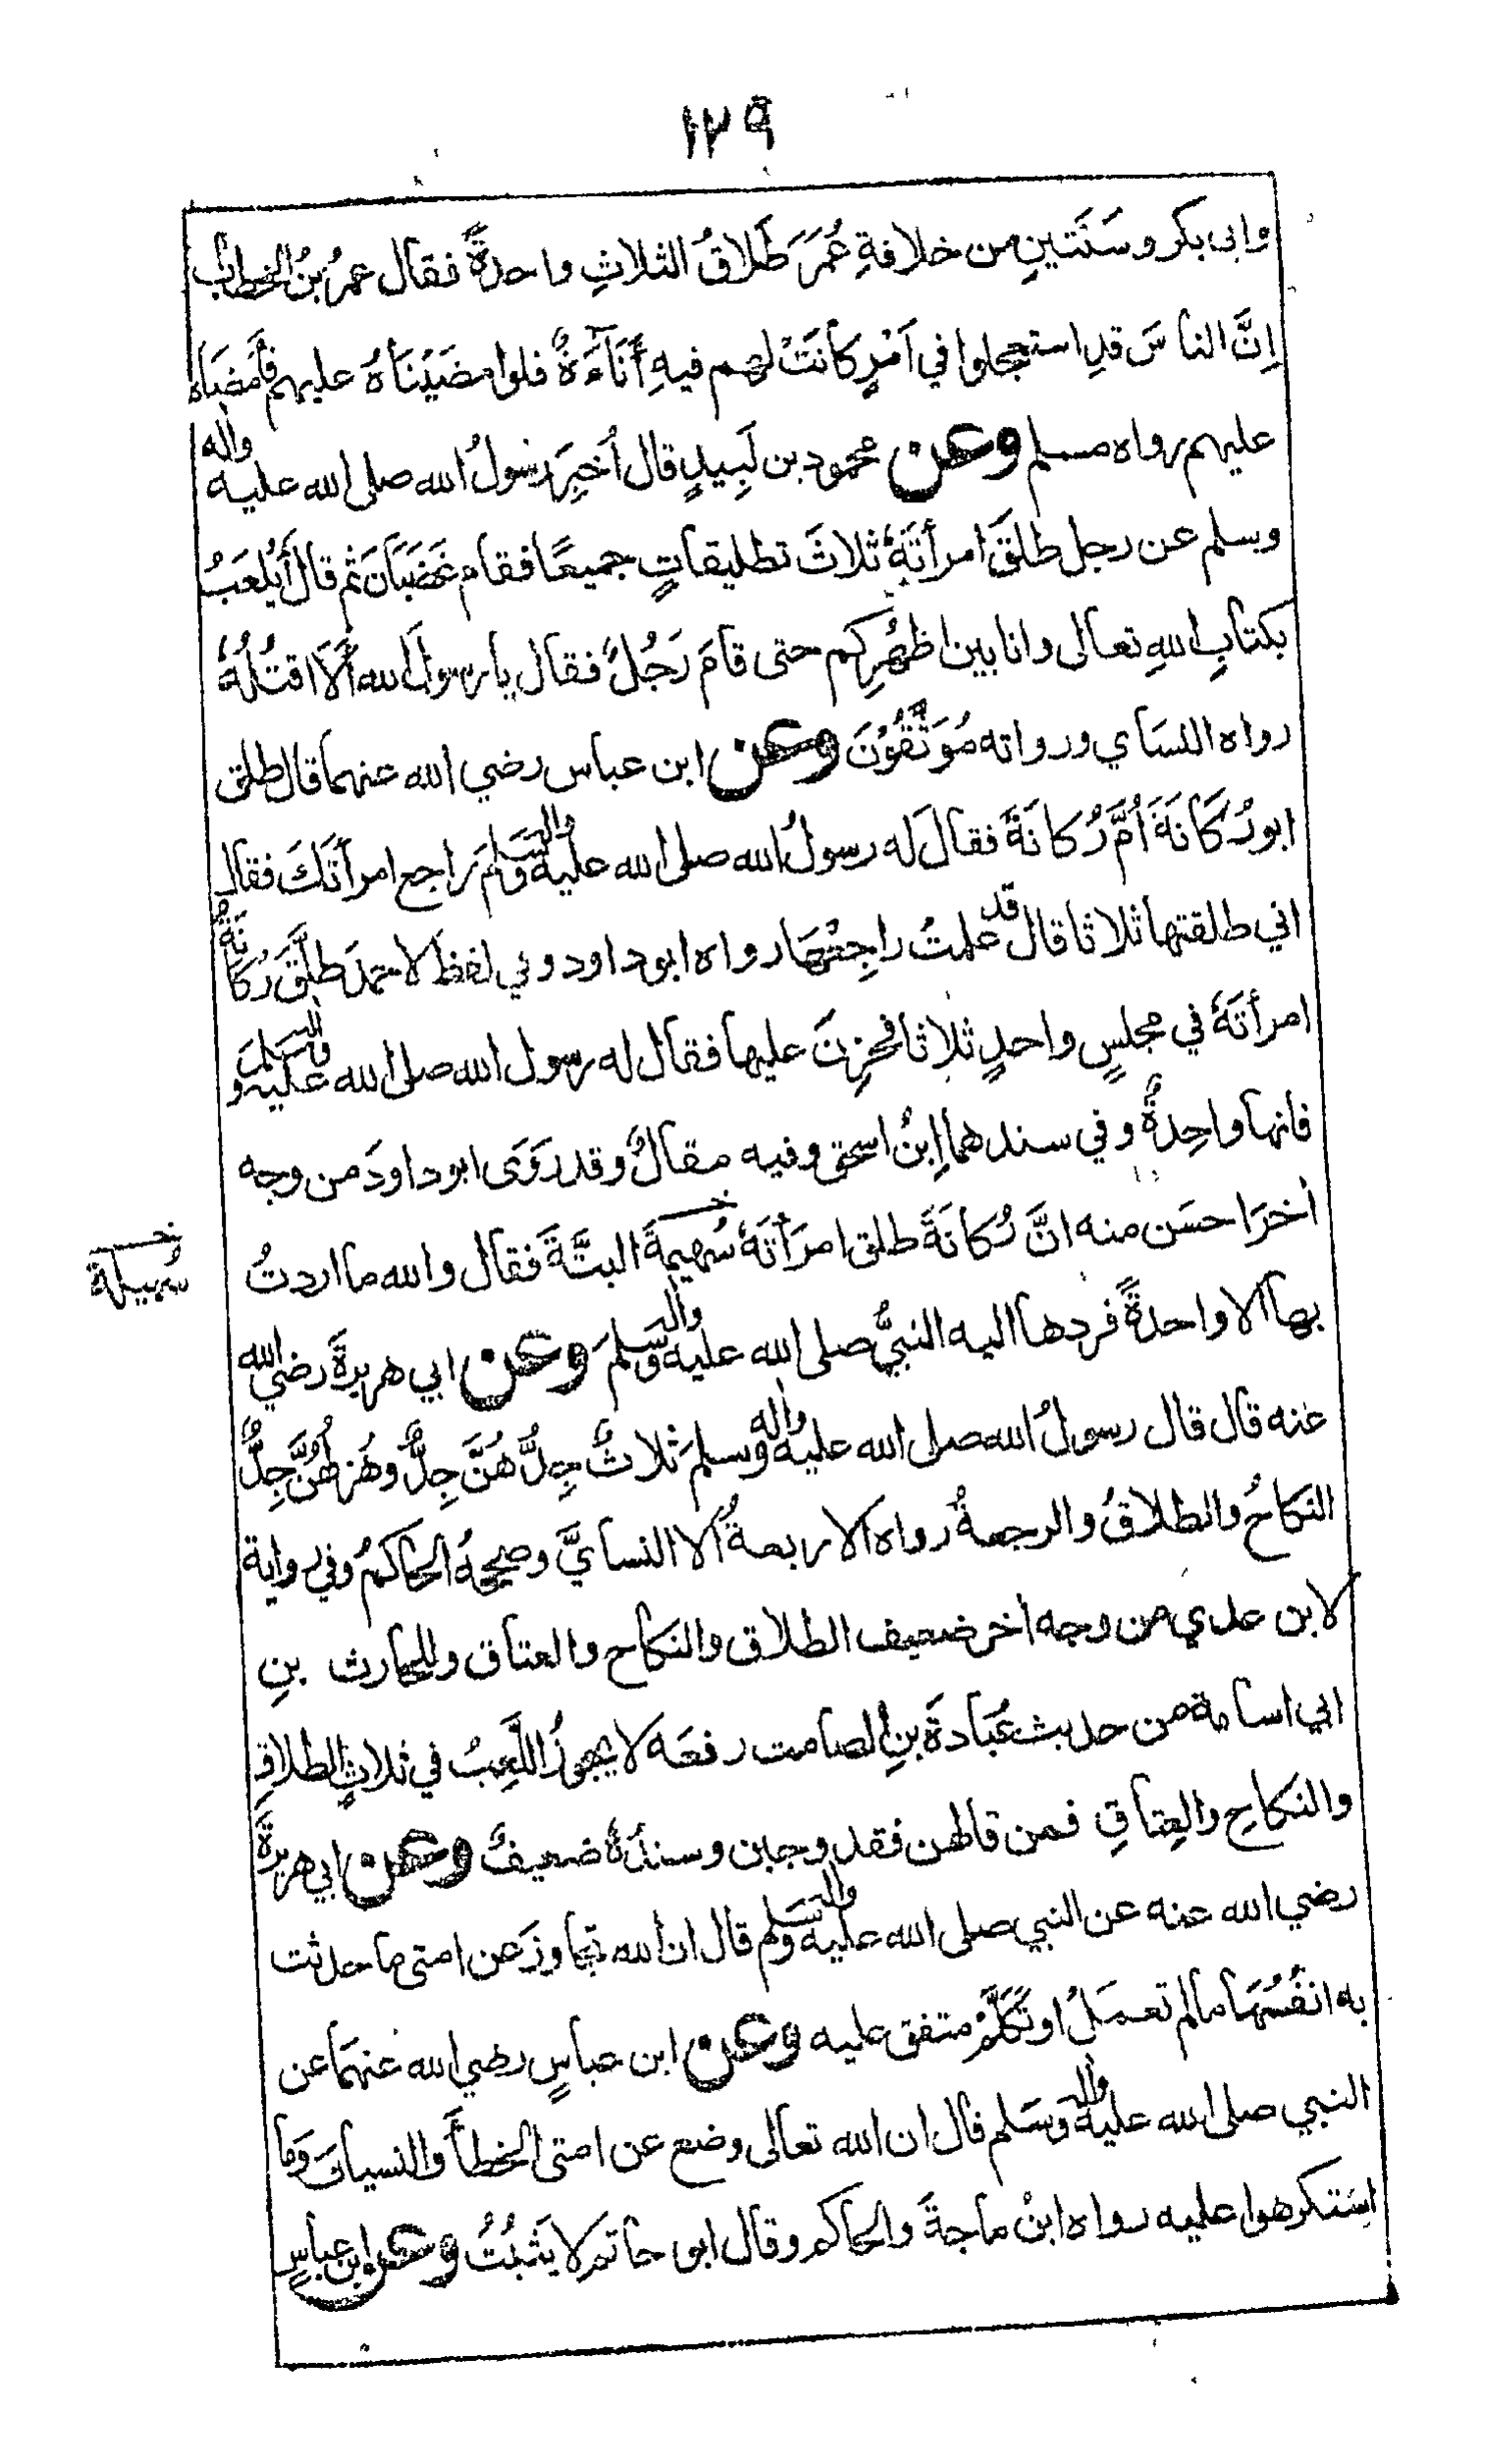 ١٢٩
وابى بكر وسَنَتينِ من خلافةِ عُمَرَ طَلاقُ الثلاثِ واحدةً فقال عمرُ بنُ الخطاب
اِنَّ الناسَ قدِ استعجلوا في اَمْرٍ كانَتْ لهم فيهِ أَنَآءَةٌ فلوا مضَيْنَاهُ عليهم فأمضَاه
عليهم رواه مسلم وعن محمود بن لَبِيدٍ قال اُخبِرَ رسولُ الله صلى الله عليه واٰله
وسلم عن رجل طلقَ امرأتَهٗ ثلاثَ تطليقاتٍ جميعًا فقام غَضَبَانَ ثم قال أَيُلعَبُ
بكتابِ اللهِ تعالى وانا بين اظهُرِكم حتى قامَ رَجُلٌ فقال يا رسولَ الله أَلَا اقتُلُهٗ
رواه النسَاي ورواته مُوَثَّقُوْنَ وعن ابن عباس رضي الله عنهما قال طلق
ابورُكَانَةَ اُمَّ رُكانَةَ فقالَ له رسولُ الله صلى الله عليه واٰله وسلمَ راجع امرأتَكَ فقال
اني طلقتها ثلاثا قال قد علمتُ راجِعْهَا رواه ابوداود وفي لفظ لاحمدَ طلَّقَ رُكانَةُ
امرأتَهٗ في مجلسٍ واحدٍ ثلاثا فحزِنَ عليها فقال له رسول الله صلى الله عليه واٰله وسلمَ
فانها واحِدةٌ وفي سندهما اِبنُ اسحق وفيه مقالٌ وقد رَوَى ابوداودَ من وجه
اٰخرَ احسَن منه انَّ رُكانَةَ طلق امرَأتَهٗ سُهيمةَ البتَّةَ فقال والله ما اردتُ
سُهيلة
بها الا واحدةً فردها اليه النبيُّ صلى الله عليه واٰله وسلمَ وعن ابي هريرةَ رضي الله
عنه قال قال رسولُ الله صلى الله عليه واٰله وسلمَ ثلاثٌ جِدُّهُنَّ جِدٌّ وهَزلُهُنَّ جِدٌّ
النكاحُ والطلاقُ والرجعةُ رواه الاربعةُ الا النسايَّ وصححهُ الحاكمُ وفي رواية
لابن عدي من وجه اٰخر ضعيف الطلاق والنكاح والعتاق وللحارث بنِ
ابي اسامة من حديث عُبَادةَ بنِ الصامت رفعَه لا يجوزُ اللَّعِبُ في ثلاثٍ الطلاقِ
والنكاحِ والعِتاقِ فمن قالهن فقد وجبن وسندُهٗ ضعيفٌ وعن ابي هريرةَ
رضي الله عنه عن النبي صلى الله عليه واٰله وسلم قال ان الله تجاوزَ عن امتى ما حدثت
به انفُسُهَا مالم تعمَلْ او تَكَلَّمْ متفق عليه وعن ابن عباسٍ رضي الله عنهمَا عن
النبي صلى الله عليه واٰله وسَلم قال ان الله تعالى وضع عن امتى الخطأَ والنسيانَ وَما
اسْتكرهوا عليه رواه ابنُ ماجةَ والحاكم وقال ابو حاتم لا يَثبُتُ وعن ابن عباسٍ